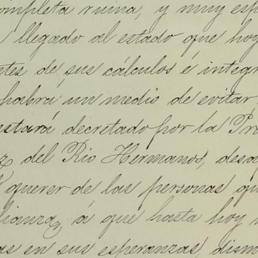 completa ruina, y muy esp
llegado al estado que hoy
ntes de sus cálculos é integr
habra un medio de evitar
estará decretado por la Pro
z del Rio Hermanos, desd
querer de las personas qu
lianza, á que hasta hoy
as en sus esperanzas dism